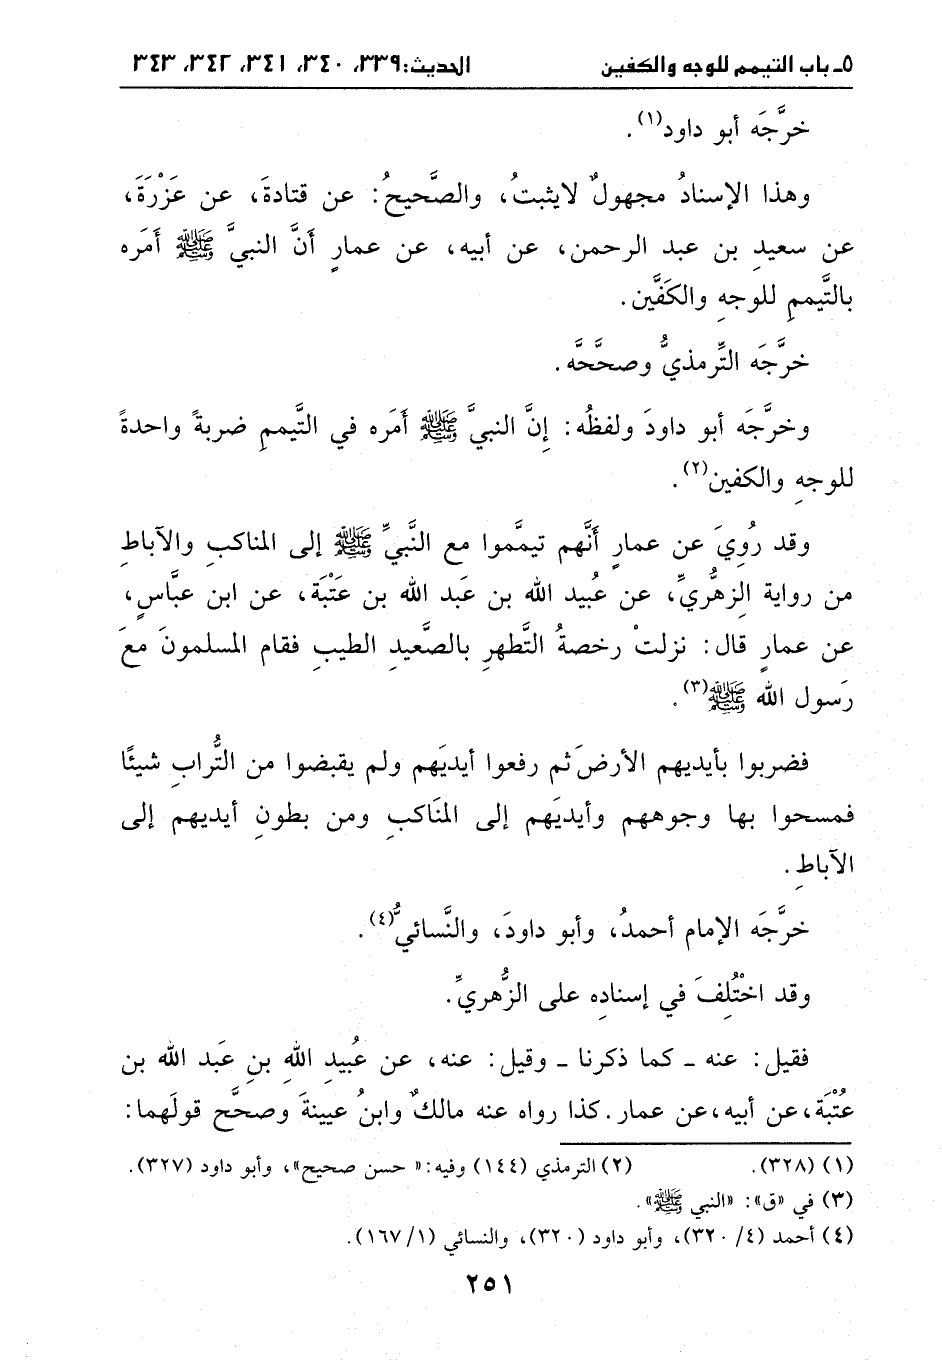 ٥ـ باب التيمم للوجه والكفين الحديث: ٣٣٩، ٣٤٠، ٣٤١، ٣٤٢، ٣٤٣
خرَّجَه أبو داود(١).
وهذا الإسنادُ مجهولٌ لايثبتُ، والصَّحيحُ: عن قتادةَ، عن عَزْرَةَ،
عن سعيدِ بن عبد الرحمن، عن أبيه، عن عمارٍ أنَّ النبيَّ ﷺ أمَره
بالتَّيممِ للوجهِ والكَفَّين.
خرَّجَه التِّرمذيُّ وصحَّحَّه.
وخرَّجَه أبو داودَ ولفظُه: إنَّ النبيَّ ﷺ أمَره في التَّيممِ ضربةً واحدةً
للوجهِ والكفين(٢).
وقد رُوِيَ عن عمارٍ أنَّهم تيمَّموا مع النَّبيِّ ﷺ إلى المناكبِ والآباطِ
من روايةِ الزهُّريِّ، عن عُبيد الله بن عَبد الله بن عَتْبَة، عن ابن عبَّاسٍ،
عن عمارٍ قال: نزلتْ رخصةُ التَّطهرِ بالصَّعيدِ الطيبِ فقام المسلمونَ معَ
رَسول الله ﷺ(٣).
فضربوا بأيديهم الأرضَ ثم رفعوا أيديَهم ولم يقبضوا من التُّرابِ شيئًا
فمسحوا بها وجوههم وأيديَهم إلى المنَاكبِ ومن بطونِ أيديهم إلى
الآباطِ.
خرَّجَه الإمام أحمدُ، وأبو داودَ، والنَّسائيُّ(٤).
وقد اخْتُلِفَ في إسنادِه على الزُّهريِّ.
فقيل: عنه ـ كما ذكرنا ـ وقيل: عنه، عن عُبيدِ اللهِ بنِ عَبد الله بن
عتُبْةَ، عن أبيه، عن عمار. كذا رواه عنه مالكٌ وابنُ عيينةَ وصحَّح قولَهما:
(١) (٣٢٨). (٢) الترمذي (١٤٤) وفيه: «حسن صحيح»، وأبو داود (٣٢٧).
(٣) في «ق»: «النبي ﷺ».
(٤) أحمد (٤/ ٣٢٠)، وأبو داود (٣٢٠)، والنسائي (١/ ١٦٧).
٢٥١